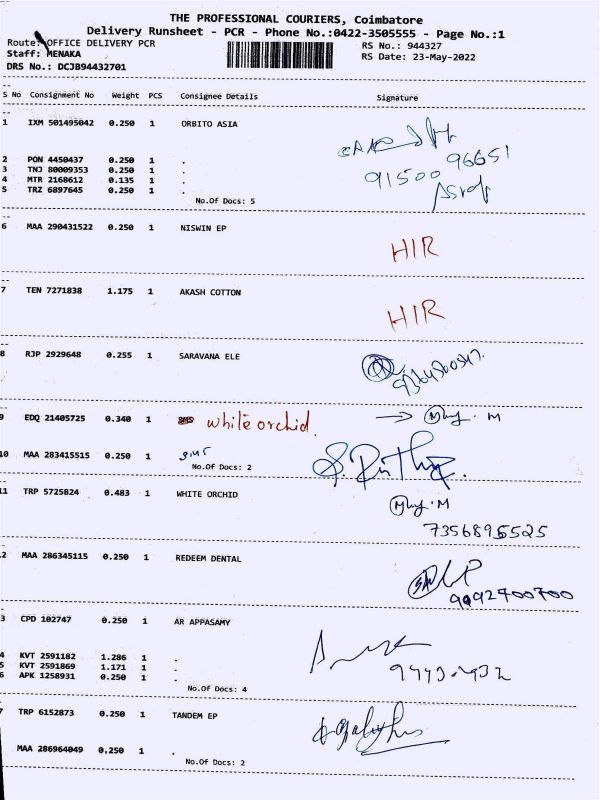 THE PROFESSIONAL COURIERS, Coimbatore
Delivery Runsheet - PCR - Phone No.:0422-3505555 - Page No.:1
Route: OFFICE DELIVERY PCR
RS No.: 944327
Staff: MENAKA
RS Date: 23-May-2022
DRS No.: DCJB94432701
S No Consignment No Weight PCS Consignee Details Signature
1 IXM 501495042 0.250 1 ORBITO ASIA
2 PON 4450437 0.250 1 .
96651
3 TNJ 80009353 0.250 1 .
4 MTR 2168612 0.135 1 .
91500
5 TRZ 6897645 0.250 1 .
No.Of Docs: 5
6 MAA 290431522 0.250 1 NISWIN EP
HIR
7 TEN 7271838 1.175 1 AKASH COTTON
HIR
8 RJP 2929648 0.255 1 SARAVANA ELE
9 EDQ 21405725 0.340 1 white orchid.
10 MAA 283415515 0.250 1 SMS
No.Of Docs: 2
11 TRP 5725824 0.483 1 WHITE ORCHID
7356895525
2 MAA 286345115 0.250 1 REDEEM DENTAL
9092700700
3 CPD 102747 0.250 1 AR APPASAMY
4 KVT 2591182 1.286 1 .
5 KVT 2591869 1.171 1 .
6 APK 1258931 0.250 1 .
No.Of Docs: 4
7 TRP 6152873 0.250 1 TANDEM EP
MAA 286964049 0.250 1 .
No.Of Docs: 2